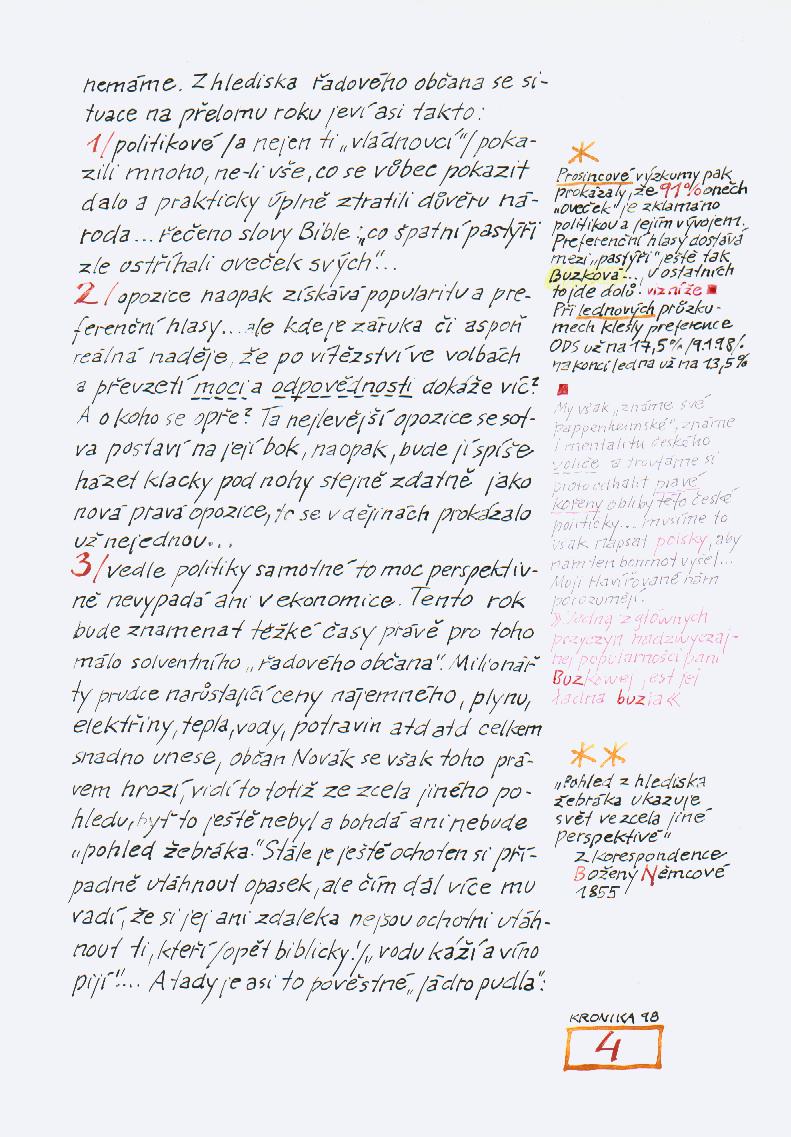 nemáme. Z hlediska řadového občana se si-
tuace na přelomu roku jeví asi takto:
1/politikové /a nejen ti „vládnoucí"/ poka-
zili mnoho, ne-li vše, co se vůbec pokazit
dalo a prakticky úplně ztratili důvěru ná-
roda... řečeno slovy Bible: „co špatní pastýři
zle ostříhali oveček svých"...
2/opozice naopak získává popularitu a pre-
ferenční hlasy... ale kde je záruka či aspoň
reálná naděje, že po vítězství ve volbách
a převzetí moci a odpovědnosti dokáže víc?
A o koho se opře? Ta nejlevější opozice se sot-
va postaví na její bok, naopak, bude jí spíše
házet klacky pod nohy stejně zdatně jako
nová pravá opozice, to se v dějinách prokázalo
už nejednou...
3/vedle politiky samotné to moc perspektiv-
ně nevypadá ani v ekonomice. Tento rok
bude znamenat těžké časy právě pro toho
málo solventního „řadového občana". Milionář
ty prudce narůstající ceny nájemného, plynu,
elektřiny, tepla, vody, potravin atd atd celkem
snadno unese, občan Novák se však toho prá-
vem hrozí, vidí to totiž ze zcela jiného po-
hledu, byť to ještě nebyl a bohdá ani nebude
„pohled žebráka." Stále je ještě ochoten si pří-
padně utáhnout opasek, ale čím dál více mu
vadí, že si jej ani zdaleka nejsou ochotni utáh-
nout ti, kteří /opět biblicky!/ „vodu káží a víno
pijí"... A tady je asi to pověstné „jádro pudla":
*
Prosincové výzkumy pak
prokázaly, že 91% oněch
„oveček" je zklamáno
politikou a jejím vývojem.
Preferenční hlasy dostává
mezi „pastýři" ještě tak
Buzková... u ostatních
to jde dolů! viz níže ■
Při lednových průzku-
mech klesly preference
ODS už na 17,5% /9.1.98/.
na konci ledna už na 13,5%
■
My však „známe své
pappenheimské", známe
i mentalitu českého
voliče a troufáme si
proto odhalit pravé
kořeny obliby této české
političky... musíme to
však napsat polsky, aby
nám ten bonmot vyšel...
Moji Havířované nám
porozumějí.
»Jedną z głównych
przyczyn nadzwyczaj-
nej popularności pani
Buzkowej jest jej
ładna buzia«
**
„Pohled z hlediska
žebráka ukazuje
svět ve zcela jiné
perspektivě"
Z korespondence
Boženy Němcové
1855
KRONIKA 98
4